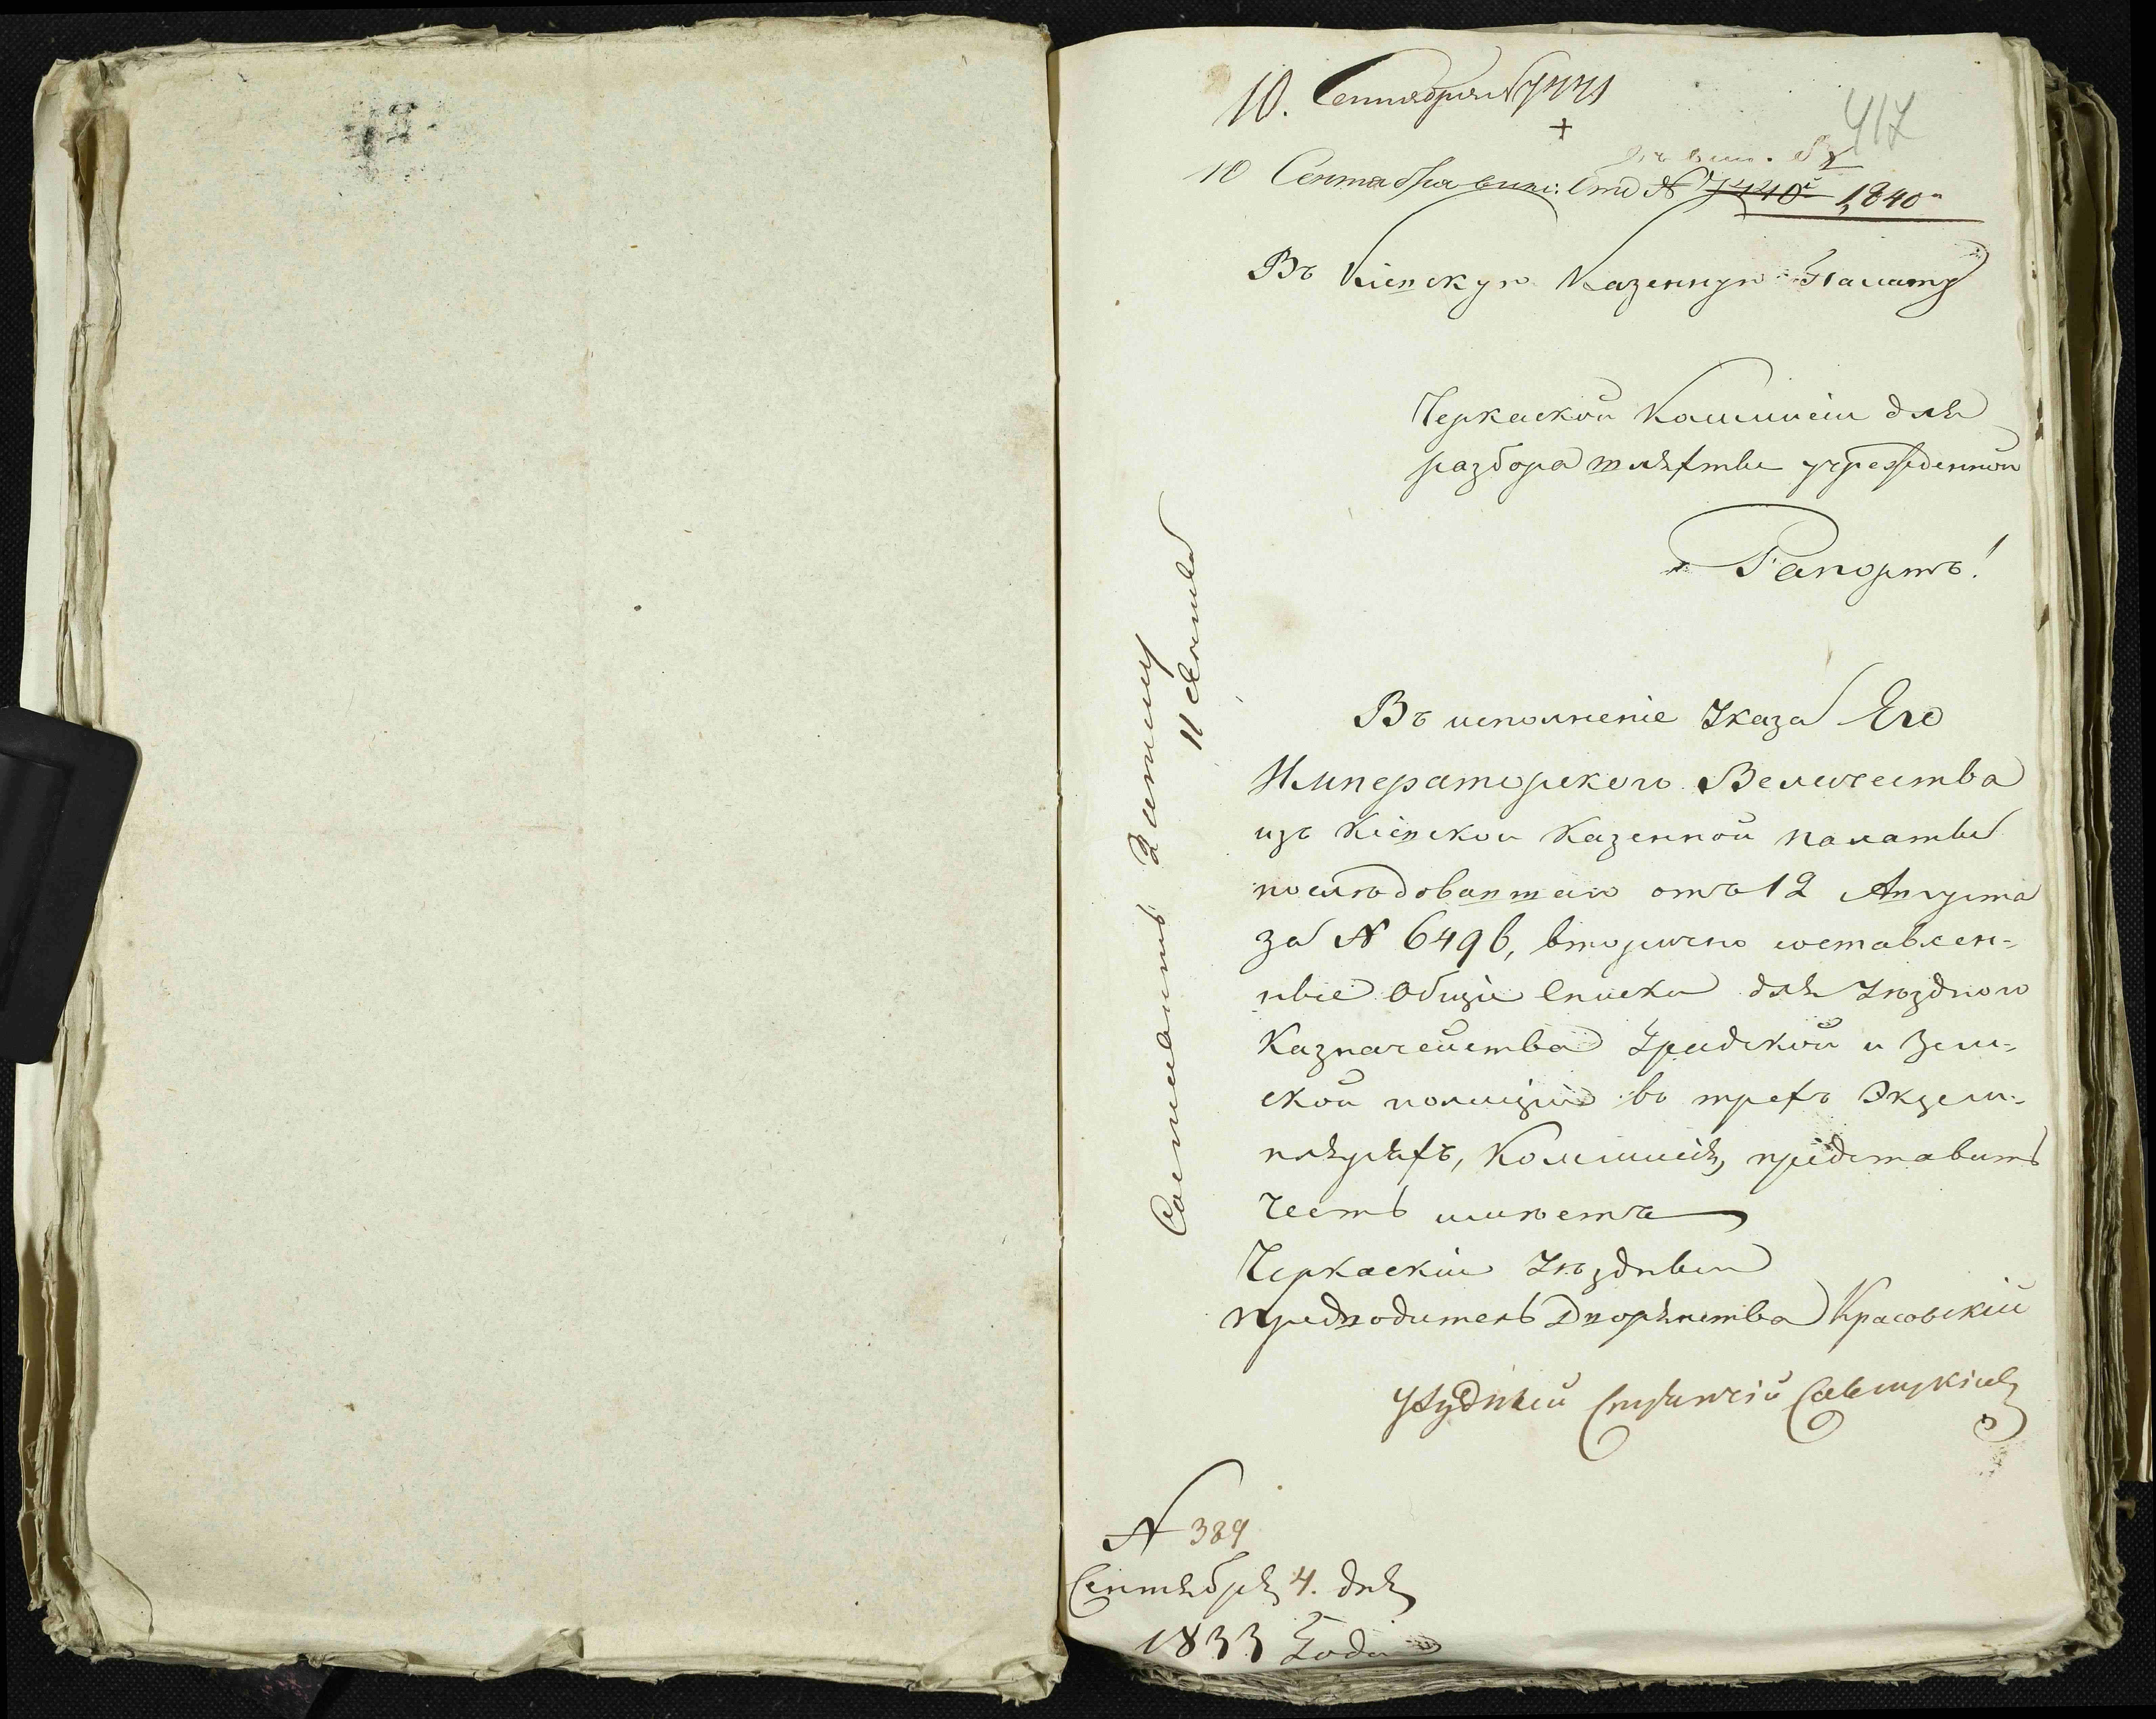 10. Сентября № 7441
417
10 Сентября Сто № 1840
Въ Кіевскую Казенную Палату
Черкаской Коммисіи для
разбора шляхты учрежденной
Рапортъ!
Въ исполненіе Указа Его
Императорского Величества
изъ Кіевской Казенной палаты
последовавшаго отъ 12 Августа
за № 6496, вторично составлен-
ные Общіе Списки для Уезднаго
Казначейства Градской и Зем-
ской полиціи въ трехъ Экзем-
плярахъ, Коммисія, представить
Честь имѣетъ
Черкаскій Уѣздный
предводитель Дворянства Красовскій
Уѣздный Стряпчій
№ 389
Сентября 4. дня
1833 Года
11 Сентября